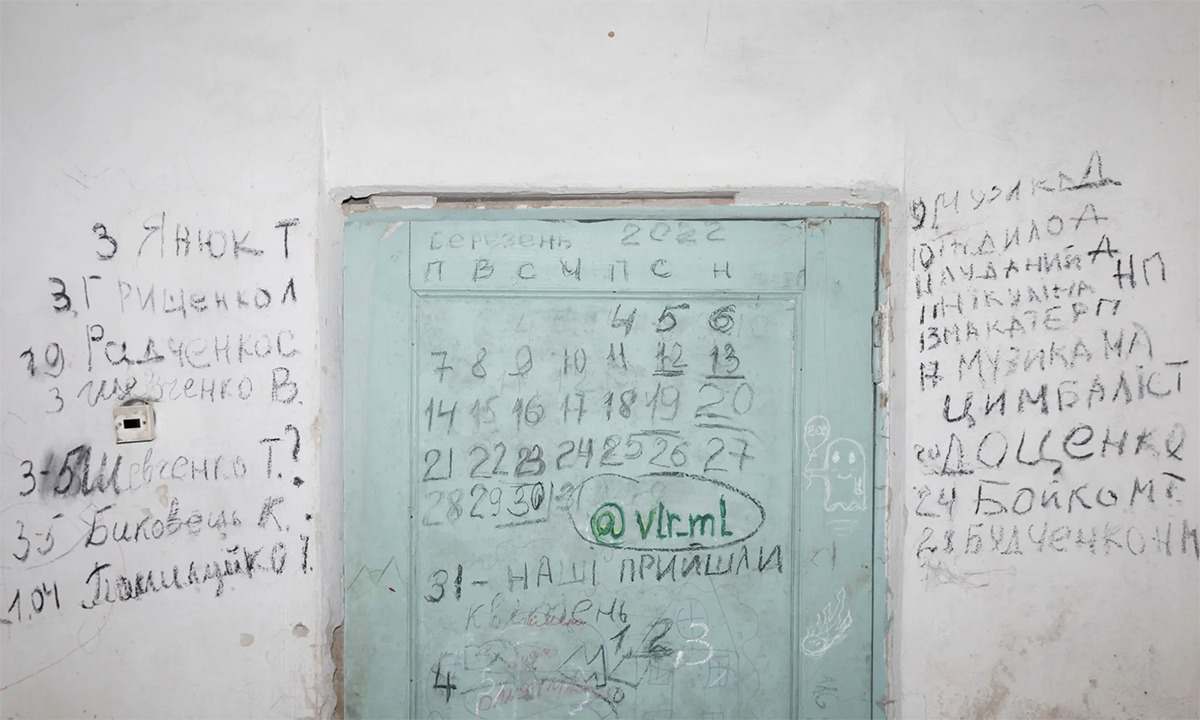 3 Янюк Т
3. Грищенко Л
19 Радченко С
3 Шевченко В.
3-5 Шевченко Т.?
3-5 Биковець К.
1.04 І.
Березень 2022
П В С Ч П С Н
4 5 6
7 8 9 10 11 12 13
14 15 16 17 18 19 20
21 22 23 24 25 26 27
28 29 30 31
@vlr_ml
31 - НАШІ ПРИЙШЛИ
квітень
1, 2, 3
4
9 Музика Д
10 А
11 Д
11 Нікуліна НП
13 МАКАТЕР П
17 МУЗИКА МА
ЦИМБАЛІСТ
20 ДОЦЕНКО
24 Бойко М Г.
28 БУДЧЕНКО Н М